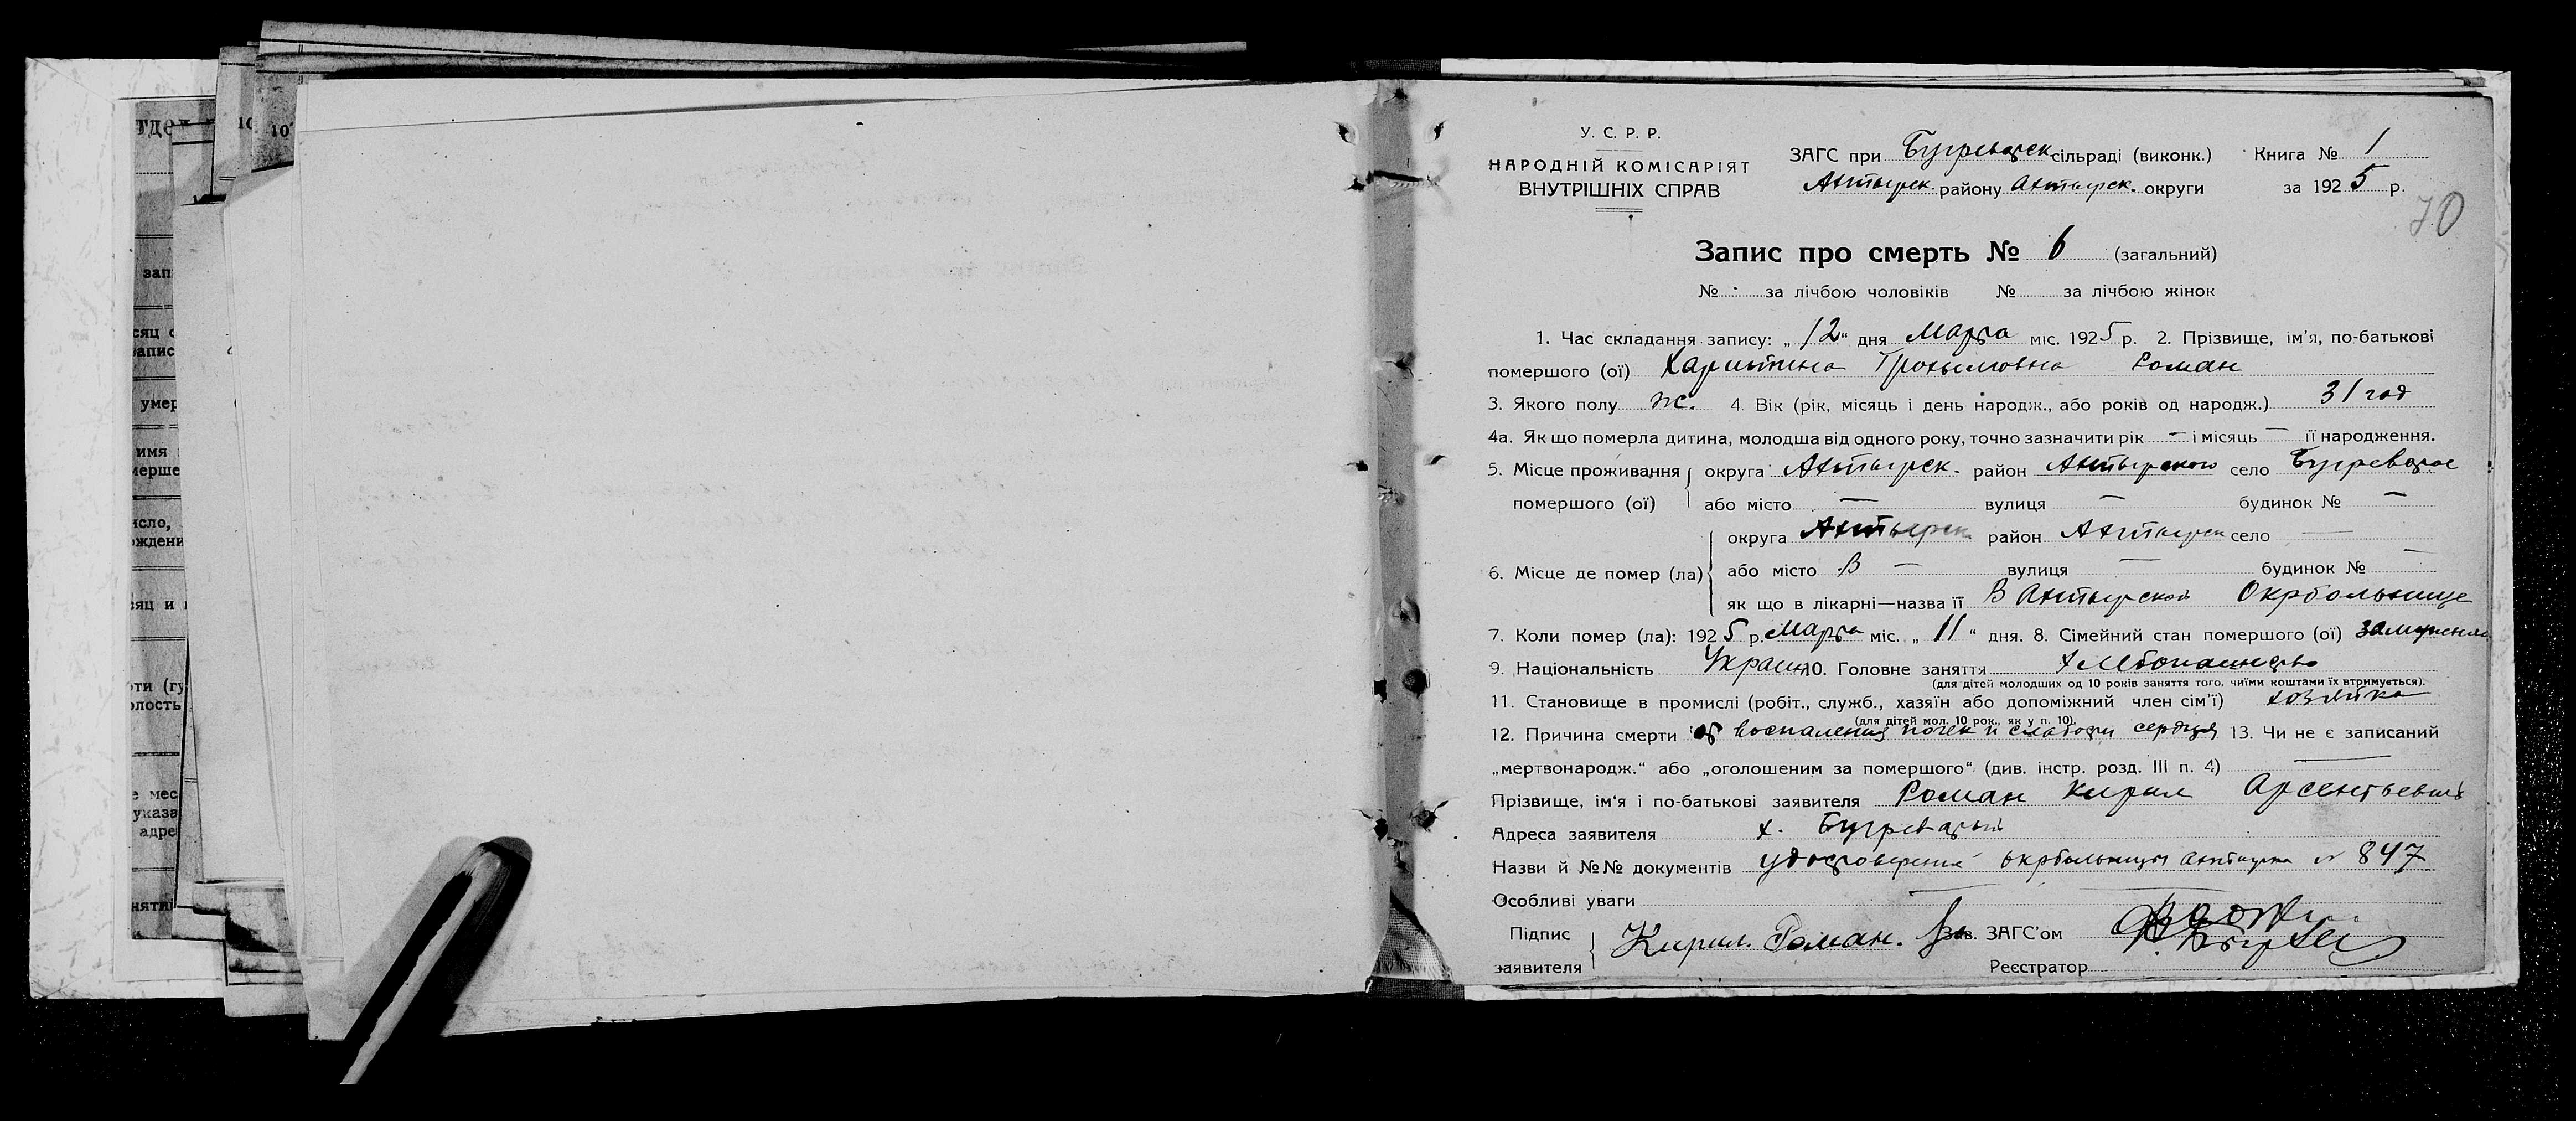 тдел
10
10
зап
сяц с
запис
умер
имя
мерше
исло,
ождени
яц и
ти (гу
олость
е мес
указа
адре
няти
У. С. Р. Р.
НАРОДНІЙ КОМІСАРІЯТ
ВНУТРІШНІХ СПРАВ
ЗАГС при Бугреватск сільраді (виконк.) Книга № 1
Ахтырск. району Ахтырск. округи за 1925 р.
70
Запис про смерть № 6 (загальний)
№ за лічбою чоловіків № за лічбою жінок
1. Час складання запису: „12“ дня Марта міс. 1925 р. 2. Прізвище, ім'я, по-батькові
помершого (ої) Харитина Трохимовна Роман
3. Якого полу ж. 4. Вік (рік, місяць і день народж., або років од народж.) 31 год
4а. Як що померла дитина, молодша від одного року, точно зазначити рік — і місяць — її народження.
5. Місце проживання округа Ахтырск. район Ахтырского село Бугреватое
помершого (ої) або місто — вулиця — будинок № —
округа Ахтырск район Ахтырск село —
6. Місце де помер (ла) або місто В — вулиця — будинок № —
як що в лікарні—назва її В Ахтырской Окрбольнице
7. Коли помер (ла): 1925 р. Марта міс. „11“ дня. 8. Сімейний стан помершого (ої) замужняя
9. Національність Украин 10. Головне заняття хлебопашество
(для дітей молодших од 10 років заняття того, чиїми коштами їх втримується).
11. Становище в промислі (робіт., служб., хазяїн або допоміжний член сім'ї) хозяйка
(для дітей мол. 10 рок., як у п. 10).
12. Причина смерти от воспаления почек и слабости сердца 13. Чи не є записаний
„мертвонародж.“ або „оголошеним за помершого“ (див. інстр. розд. III п. 4) —
Прізвище, ім'я і по-батькові заявителя Роман Кирил Арсентьевич
Адреса заявителя х. Бугреватый
Назви й №№ документів удостоверения окрбольницы Ахтырка № 847
Особливі уваги —
Підпис
заявителя Кирил. Роман. Зав. ЗАГС'ом
Реєстратор